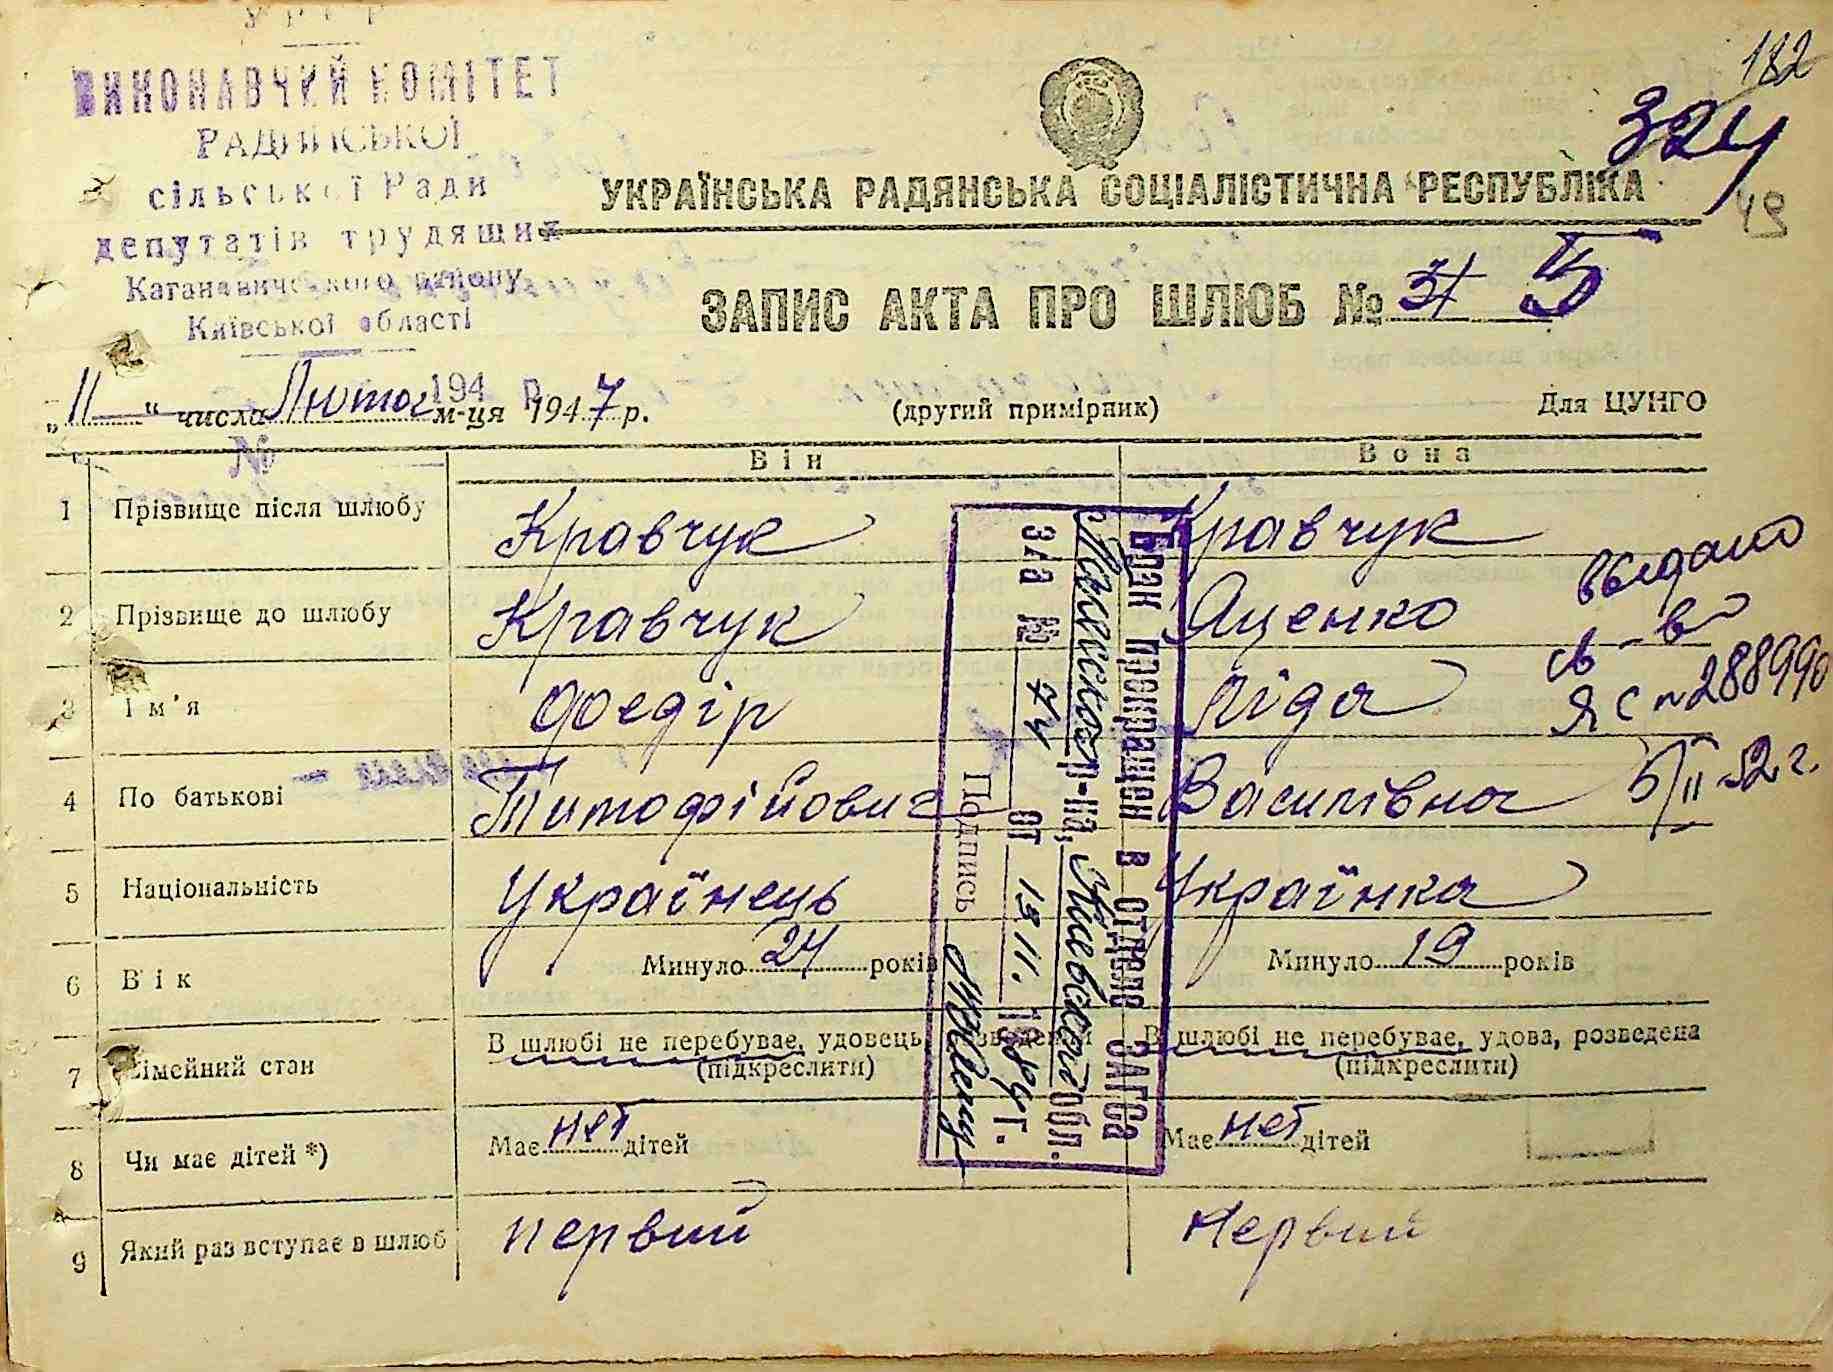 УРСР
ВИКОНАВЧИЙ КОМІТЕТ
РАДИНСЬКОЇ
сільської Ради
депутатів трудящих
Кагановичського району
Київської області
182
324
49
УКРАЇНСЬКА РАДЯНСЬКА СОЦІАЛІСТИЧНА РЕСПУБЛІКА
ЗАПИС АКТА ПРО ШЛЮБ № 31 5
194 р.
№
„11“ числа Лютого м-ця 1947 р.
(другий примірник)
Для ЦУНГО
Він
Вона
1 Прізвище після шлюбу Кравчук Кравчук
2 Прізвище до шлюбу Кравчук Яценко
3 Ім'я Федір Ліда
4 По батькові Тимофійович Василівна
5 Національність Українець Українка
6 Вік Минуло 24 років Минуло 19 років
7 Сімейний стан В шлюбі не перебуває, удовець, розведений В шлюбі не перебуває, удова, розведена
(підкреслити) (підкреслити)
8 Чи має дітей *) Має нет дітей Має нет дітей
9 Який раз вступає в шлюб первий первий
выдано
св-во
ЯС № 288990
5/II-52 г.
Брак прекращен в отделе ЗАГСа
р-на, Киевской обл.
ЗА № 74 от 19.11.1984 г.
Подпись